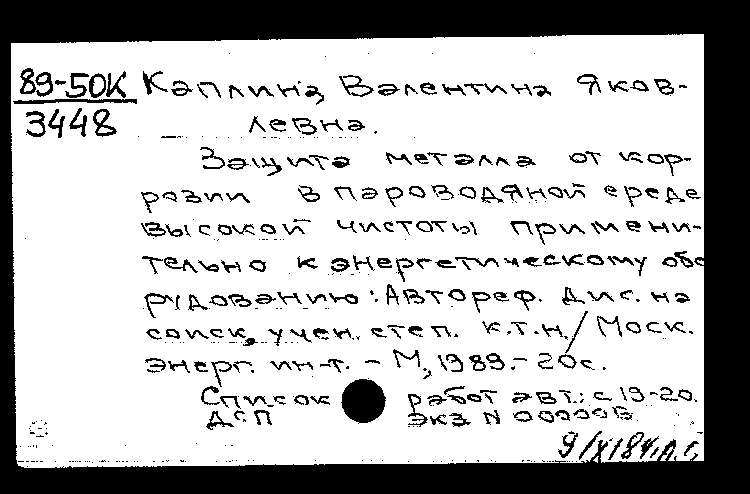 89-50К Каплина, Валентина Яков-
3448 левна.
Защита металла от кор-
розии в пароводяной среде
высокой чистоты примени-
тельно к энергетическому обо
рудованию: Автореф. дис. на
соиск. учен. степ. к.т.н. / Моск.
энерг. ин-т. - М., 1989. - 20с.
Список работ авт.: с 19-20.
ДСП экз N 000006